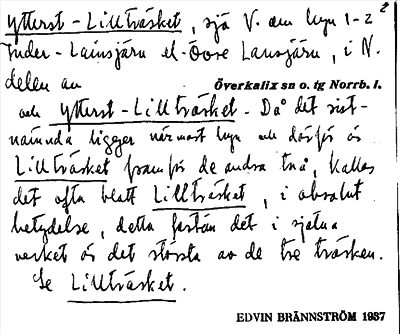 Ytterst-Lillträsket, sjö V. om byn 1-2
2
Inder-Lainsjärv el. Övre Lansjärv, i N.
delen av
Överkalix sn o. tg Norrb. l.
och Ytterst-Lillträsket. Då det sist-
nämnda ligger närmast byn och därför är
Lillträsket framför de andra två, kallas
det ofta blott Lillträsket, i absolut
betydelse, detta fastän det i själva
verket är det största av de tre träsken.
Se Lillträsket.
EDVIN BRÄNNSTRÖM 1937